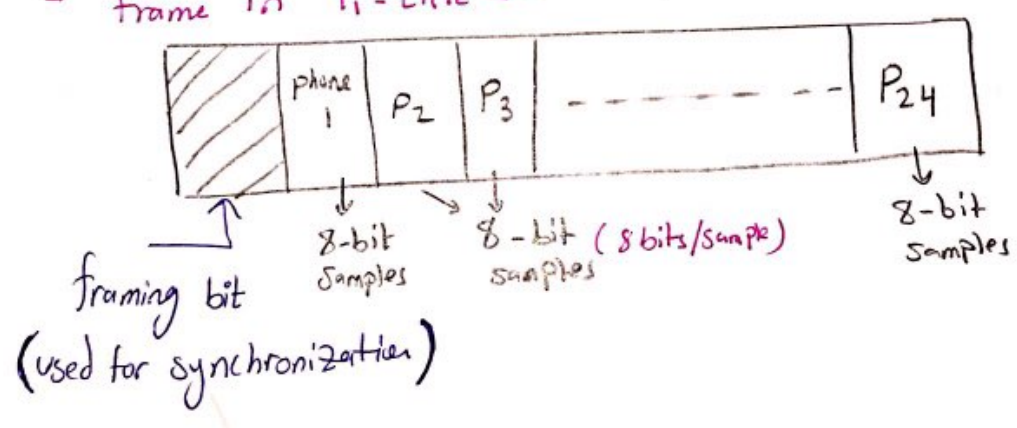 frame in T1-line
phone P2 P3 - - - - - - - P24
1
8-bit 8-bit (8 bits/sample) 8-bit
samples samples samples
framing bit
(used for synchronization)